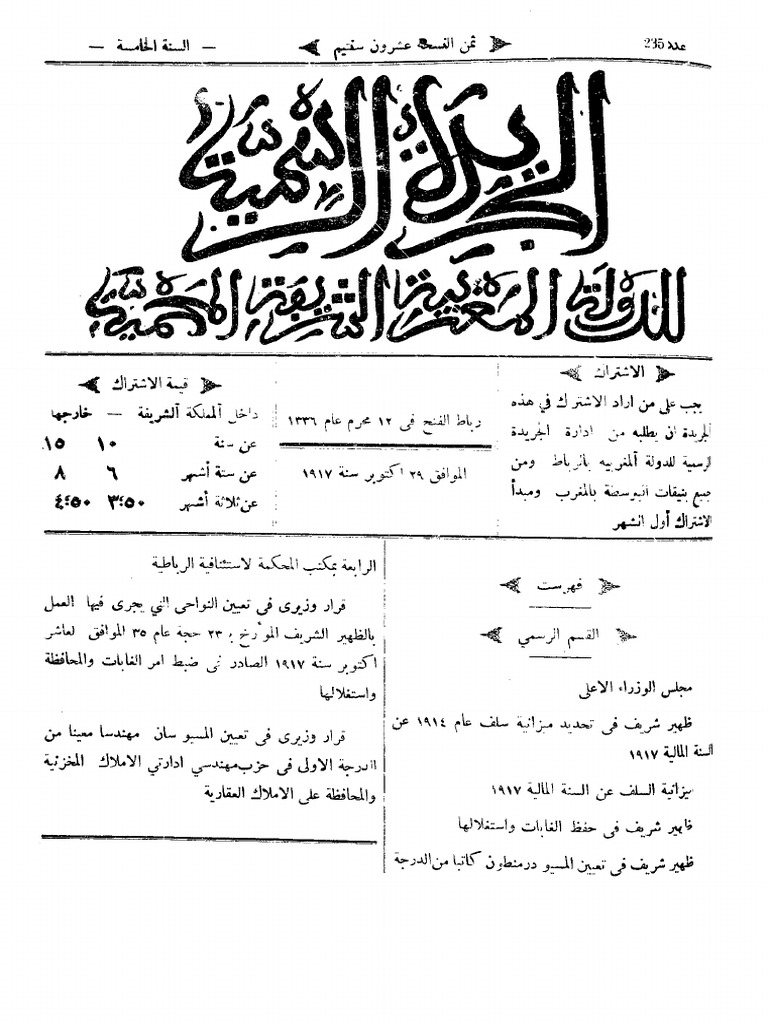 عدد 235
ثمن النسخة عشرون سنتيم
— السنة الخامسة —
الجريدة الرسمية
للدولة المغربية الشريفة المحمية
الاشتراك
يجب على من اراد الاشتراك في هذه
الجريدة ان يطلبه من ادارة الجريدة
الرسمية للدولة المغربيه بالرباط ومن
جميع بنيقات البوسطة بالمغرب ومبدأ
الاشتراك أول الشهر
رباط الفتح فى ١٢ محرم عام ١٣٣٦
الموافق ٢٩ اكتوبر سنة ١٩١٧
قيمة الاشتراك
داخل المملكة الشريفة — خارجها
عن سنة ١٠ ١٥
عن ستة أشهر ٦ ٨
عن ثلاثة أشهر ٣،٥٠ ٤،٥٠
فهرست
القسم الرسمي
مجلس الوزراء الاعلى
ظهير شريف فى تحديد ميزانية سلف عام ١٩١٤ عن
السنة المالية ١٩١٧
ميزانية السلف عن السنة المالية ١٩١٧
ظهير شريف فى حفظ الغابات واستغلالها
ظهير شريف فى تعيين المسيو درمنطون كاتبا من الدرجة
الرابعة بمكتب المحكمة لاستئنافية الرباطية
قرار وزيرى فى تعيين النواحى التي يجرى فيها العمل
بالظهير الشريف المؤرخ بـ ٢٣ حجة عام ٣٥ الموافق لعاشر
اكتوبر سنة ١٩١٧ الصادر فى ضبط امر الغابات والمحافظة
واستغلالها
قرار وزيرى فى تعيين المسيو سان مهندسا معينا من
الدرجة الاولى فى حزب مهندسي ادارتي الاملاك المخزنية
والمحافظة على الاملاك العقارية